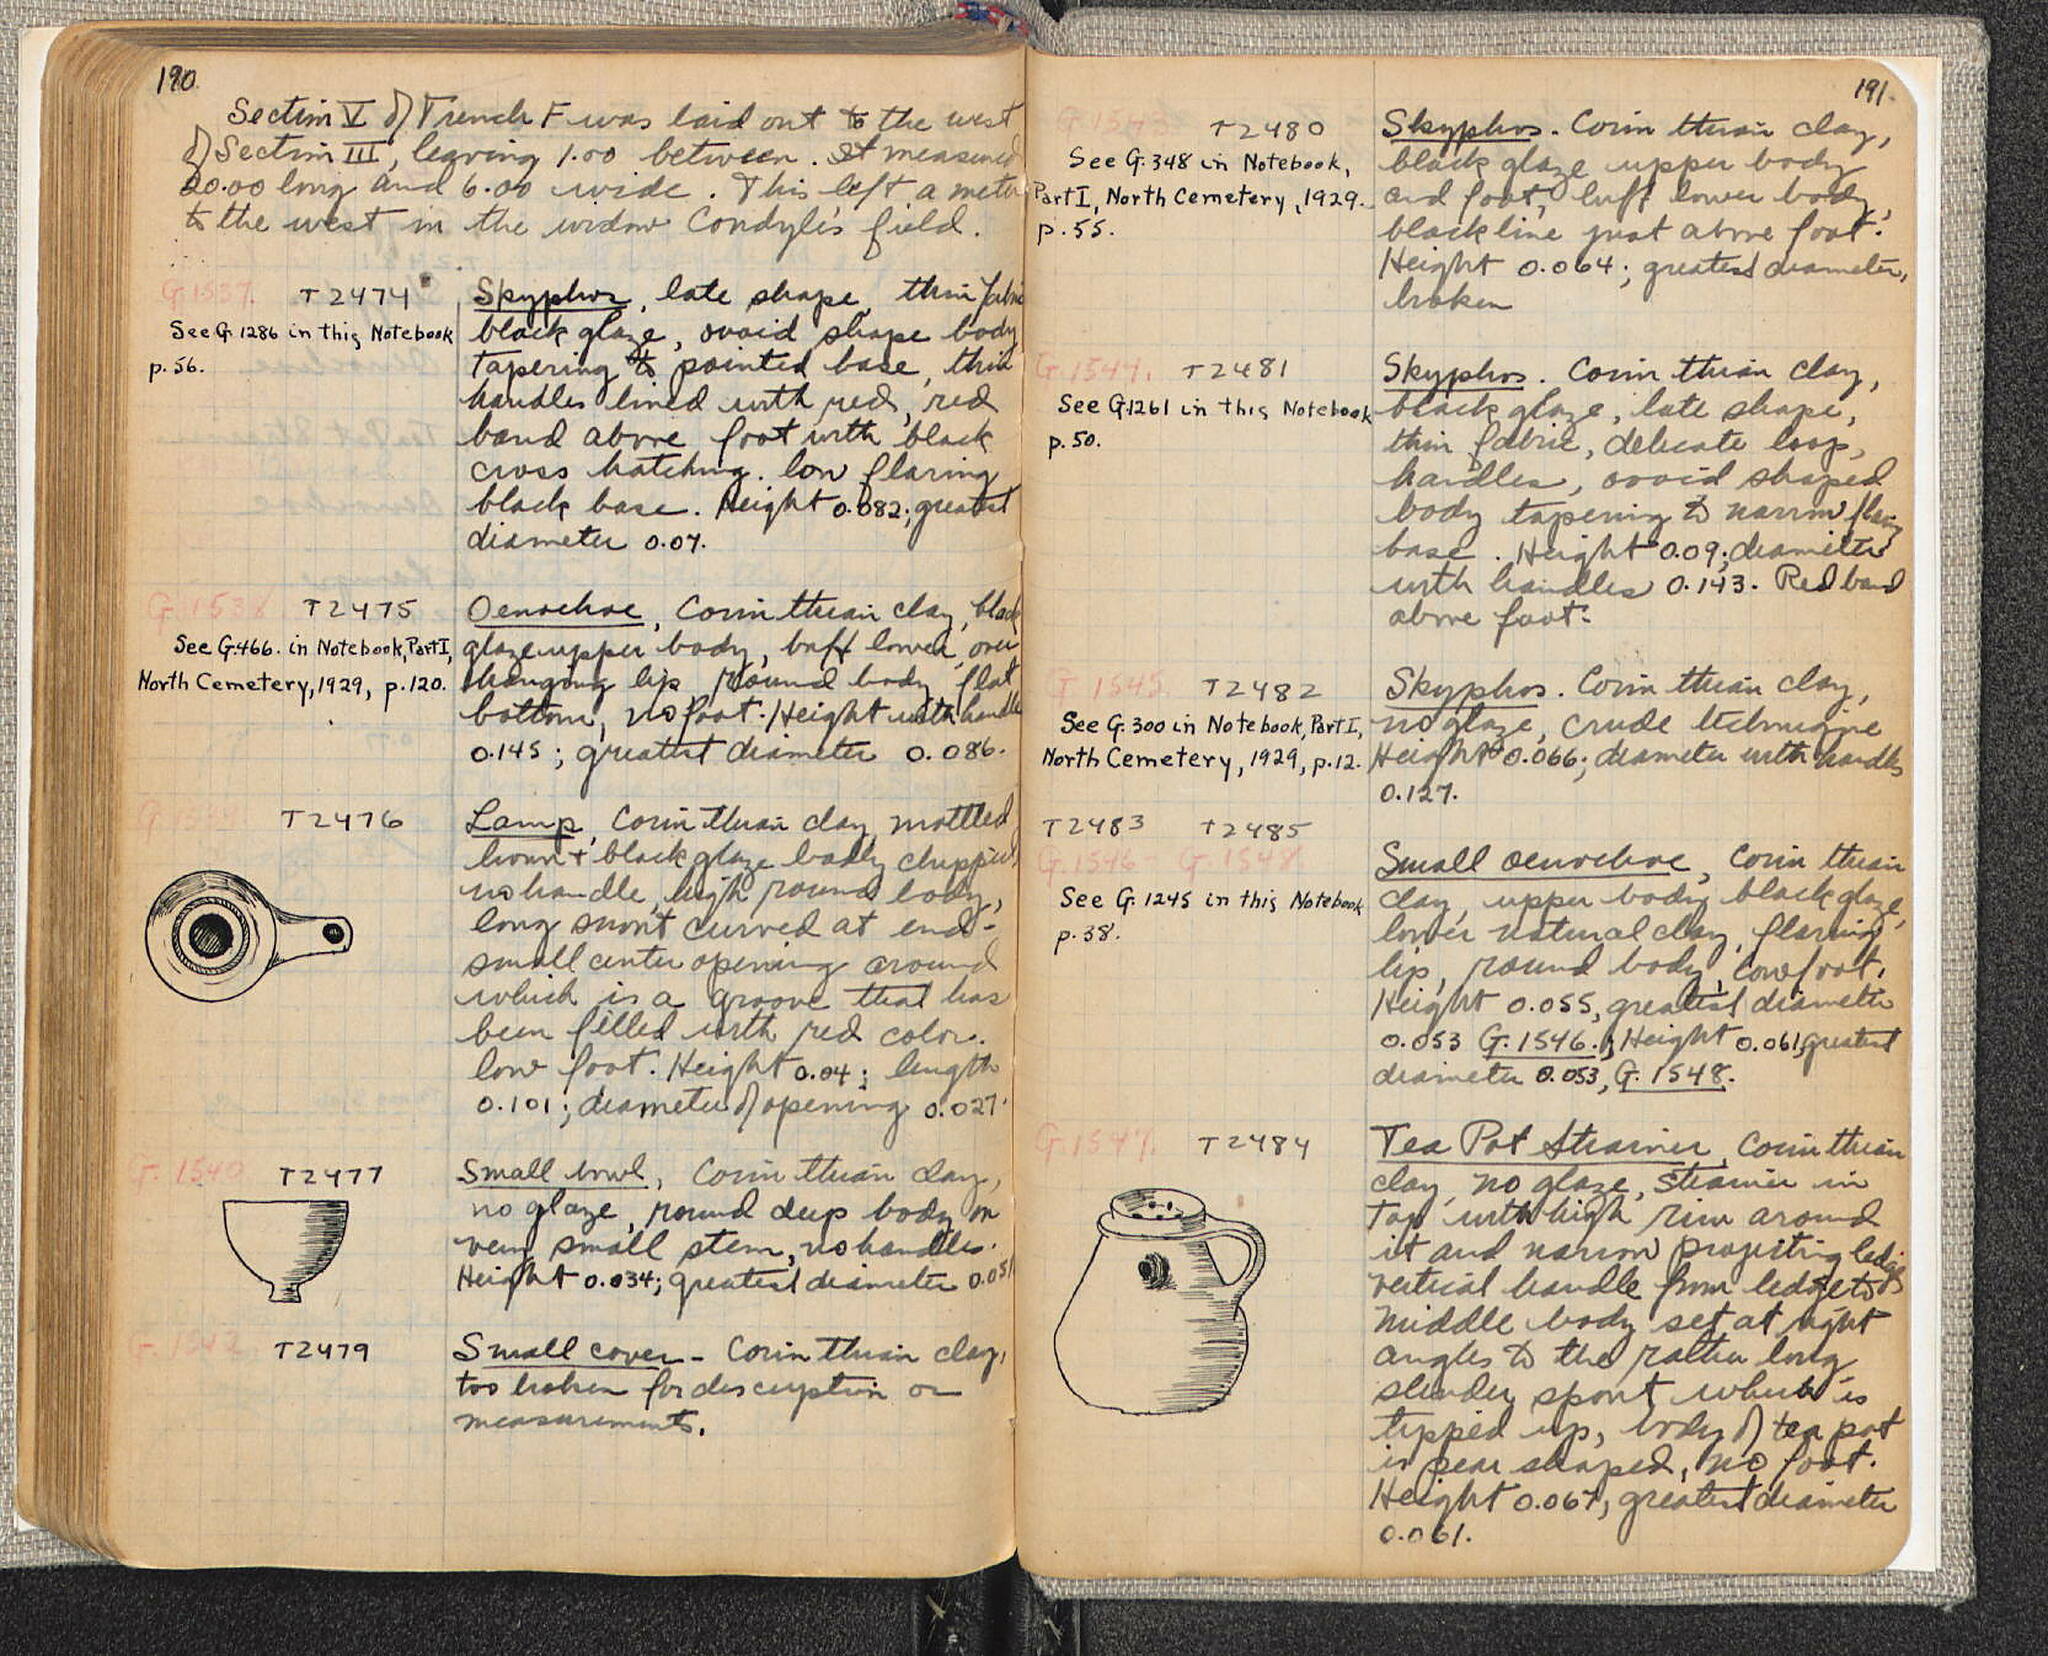 190.
Section V of Trench F was laid out to the west
of Section III, leaving 1.00 between. It measured
20.00 long and 6.00 wide. This left a meter
to the west in the widow Condyli's field.
G. 1537. T 2474
See G. 1286 in this Notebook
p. 56.
Skyphos, late shape, thin fabric
black glaze, ovoid shape body
tapering to pointed base, thin
handles lined with red, red
band above foot with black
cross hatching. low flaring
black base. Height 0.082; greatest
diameter 0.07.
G. 1538 T 2475
See G. 466. in Notebook, Part I,
North Cemetery, 1929, p. 120.
Oenochoe, Corinthian clay, black
glaze upper body, buff lower, over
hanging lip, round body, flat
bottom, no foot. Height with handle
0.145; greatest diameter 0.086.
T 2476
Lamp, Corinthian clay, mottled
brown + black glaze badly chipped,
no handle, high round body,
long snout curved at end-
small center opening around
which is a groove that has
been filled with red color.
low foot. Height 0.04; length
0.101; diameter of opening 0.027.
G. 1540 T 2477
Small bowl, Corinthian clay,
no glaze, round deep body on
very small stem, no handles.
Height 0.034; greatest diameter 0.051
G. 1542 T 2479
Small cover - Corinthian clay,
too broken for description or
measurements.
191.
G. 1543 T 2480
See G. 348 in Notebook,
Part I, North Cemetery, 1929.
p. 55.
Skyphos. Corinthian clay,
black glaze upper body
and foot, buff lower body,
black line just above foot.
Height 0.064; greatest diameter,
broken
G. 1544. T 2481
See G. 1261 in this Notebook
p. 50.
Skyphos. Corinthian clay,
black glaze, late shape,
thin fabric, delicate loop,
handles, ovoid shaped
body tapering to narrow flaring
base. Height 0.09; diameter
with handles 0.143. Red band
above foot.
G. 1545. T 2482
See G. 300 in Notebook, Part I,
North Cemetery, 1929, p. 12.
Skyphos. Corinthian clay,
no glaze, crude technique
Height 0.066; diameter with handles
0.127.
T 2483 T 2485
G. 1546 - G. 1548
See G. 1245 in this Notebook
p. 38.
Small oenochoe, Corinthian
clay, upper body black glaze,
lower natural clay, flaring
lip, round body, low foot.
Height 0.055, greatest diameter
0.053 G. 1546.; Height 0.061, greatest
diameter 0.053, G. 1548.
G. 1547. T 2484
Tea Pot Strainer, Corinthian
clay, no glaze, strainer in
top with high rim around
it and narrow projecting ledge
vertical handle from ledge to
middle body set at right
angles to the rather long
slender spout which is
tipped up, body of tea pot
is pear shaped, no foot.
Height 0.067, greatest diameter
0.061.